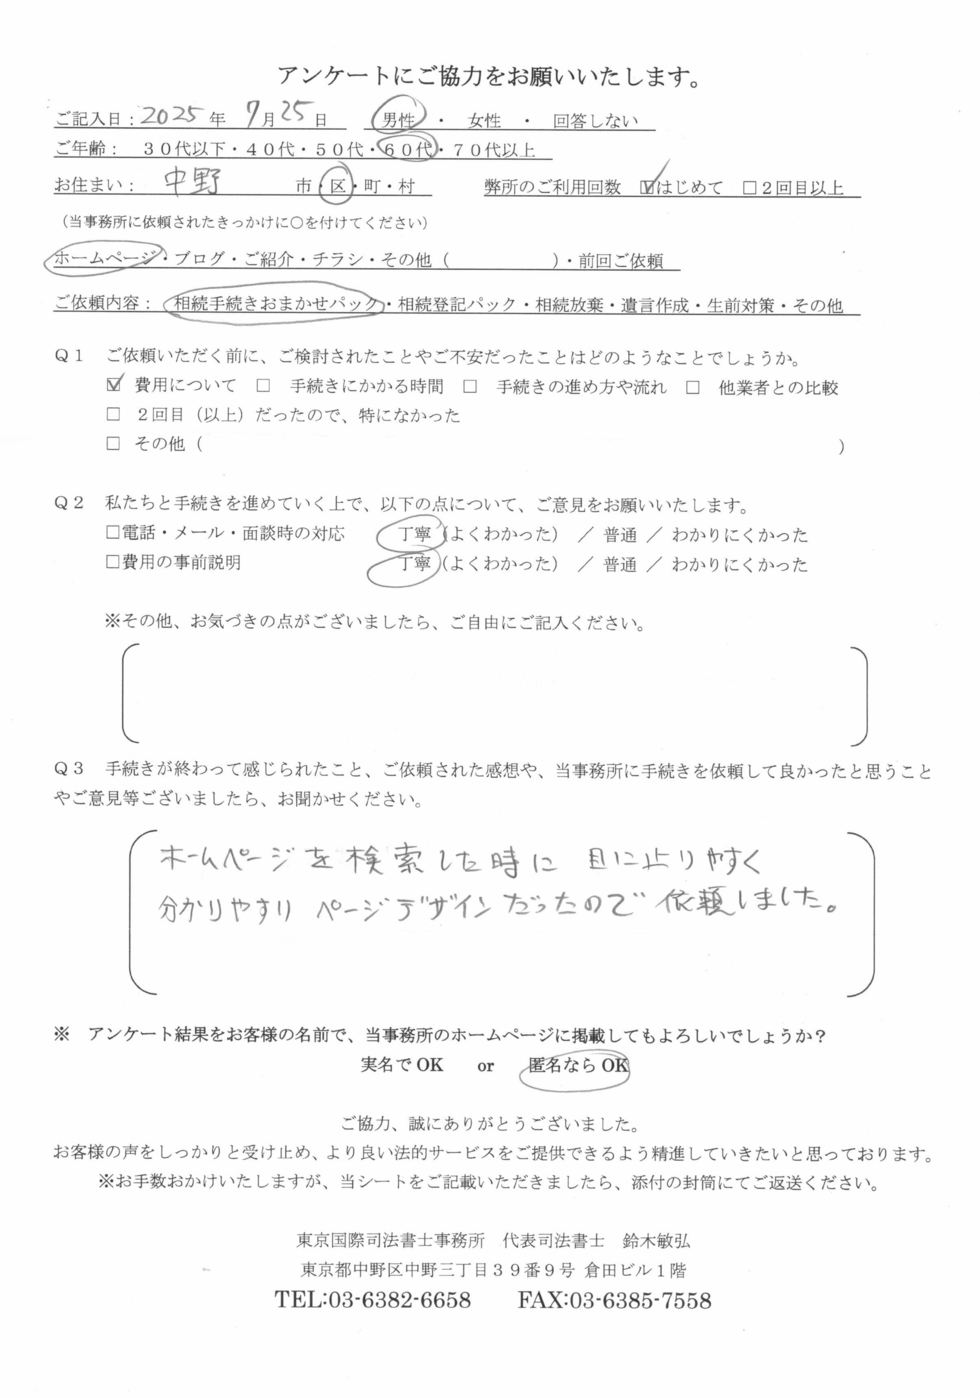 アンケートにご協力をお願いいたします。
ご記入日：2025年 7月25日 男性 ・ 女性 ・ 回答しない
ご年齢： 30代以下・40代・50代・60代・70代以上
お住まい： 中野 市・区・町・村 弊所のご利用回数 ☑はじめて □2回目以上
（当事務所に依頼されたきっかけに○を付けてください）
ホームページ・ブログ・ご紹介・チラシ・その他（ ）・前回ご依頼
ご依頼内容： 相続手続きおまかせパック・相続登記パック・相続放棄・遺言作成・生前対策・その他
Q1 ご依頼いただく前に、ご検討されたことやご不安だったことはどのようなことでしょうか。
☑ 費用について □ 手続きにかかる時間 □ 手続きの進め方や流れ □ 他業者との比較
□ 2回目（以上）だったので、特になかった
□ その他（ ）
Q2 私たちと手続きを進めていく上で、以下の点について、ご意見をお願いいたします。
□電話・メール・面談時の対応 丁寧（よくわかった） ／ 普通 ／ わかりにくかった
□費用の事前説明 丁寧（よくわかった） ／ 普通 ／ わかりにくかった
※その他、お気づきの点がございましたら、ご自由にご記入ください。
Q3 手続きが終わって感じられたこと、ご依頼された感想や、当事務所に手続きを依頼して良かったと思うこと
やご意見等ございましたら、お聞かせください。
ホームページを検索した時に 目に止りやすく
分かりやすい ページデザインだったので 依頼しました。
※ アンケート結果をお客様の名前で、当事務所のホームページに掲載してもよろしいでしょうか？
実名でOK or 匿名ならOK
ご協力、誠にありがとうございました。
お客様の声をしっかりと受け止め、より良い法的サービスをご提供できるよう精進していきたいと思っております。
※お手数おかけいたしますが、当シートをご記載いただきましたら、添付の封筒にてご返送ください。
東京国際司法書士事務所 代表司法書士 鈴木敏弘
東京都中野区中野三丁目39番9号 倉田ビル1階
TEL:03-6382-6658 FAX:03-6385-7558